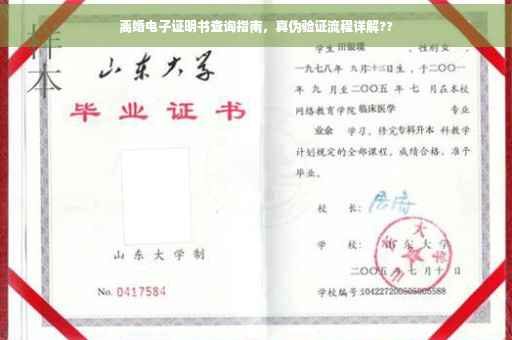 离婚电子证明书查询指南，真伪验证流程详解??
样本
山东大学
毕业证书
山东大学制
No. 0417584
学生 性别女，
一九七八年 九月十三日生，于二〇〇一
年 九 月至二〇〇五 年 七 月在本校
网络教育学院临床医学 专业
业余 学习，修完专科升本 科教学
计划规定的全部课程，成绩合格，准予
毕业。
校 长：
学 校：山东大学
二〇〇五 年 七 月 十 日
学校编号: